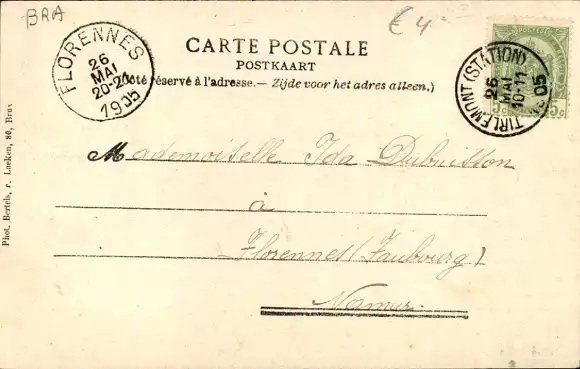 BRA
€ 4
CARTE POSTALE
POSTKAART
(Côté réservé à l'adresse.— Zijde voor het adres alleen.)
FLORENNES
26
MAI
1905
TIRLEMONT (STATION)
26
MAI
10-11
05
5c 5c
Mademoiselle Ida Dubuisson
à
Florennes (Faubourg)
Namur.
Phot. Bertels, r. Laeken, 80, Brux